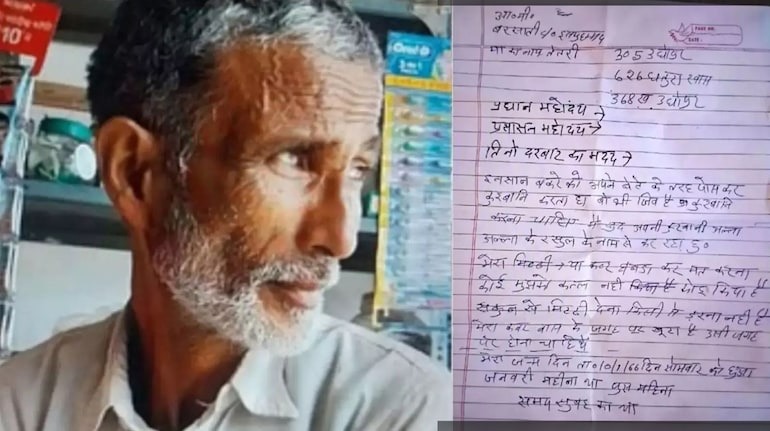 10
Oral
PAGE NO.:
DATE:
बरसाती
305 उधोपुर
626
368 ख. उधोपुर
प्रधान महोदय →
प्रसासन महोदय →
तिनो दरबार का मदद →
इनसान बकरे को अपने बेटे के तरह पोस कर
कुरबानि करता है वो भी जिव है कुरबानि
करना चाहिए मै खुद अपनी कुरबानी
अल्ला के रसुल के नाम से कर रहा हु०
मेरा मिटटी → या कबर घबडा कर मत करना
कोई मुझको कतल नही किया है
सकुन से मिटटी देना किसी से डरना नही है
मेरा कबर बास के जगह पर खुटा है उसी जगह
पर होना चाहिये
मेरा जन्म दिन ता० /1/66 दिन सोमवार को हुआ
जनवरी महीना था पुस महिना
समय सुबह का था